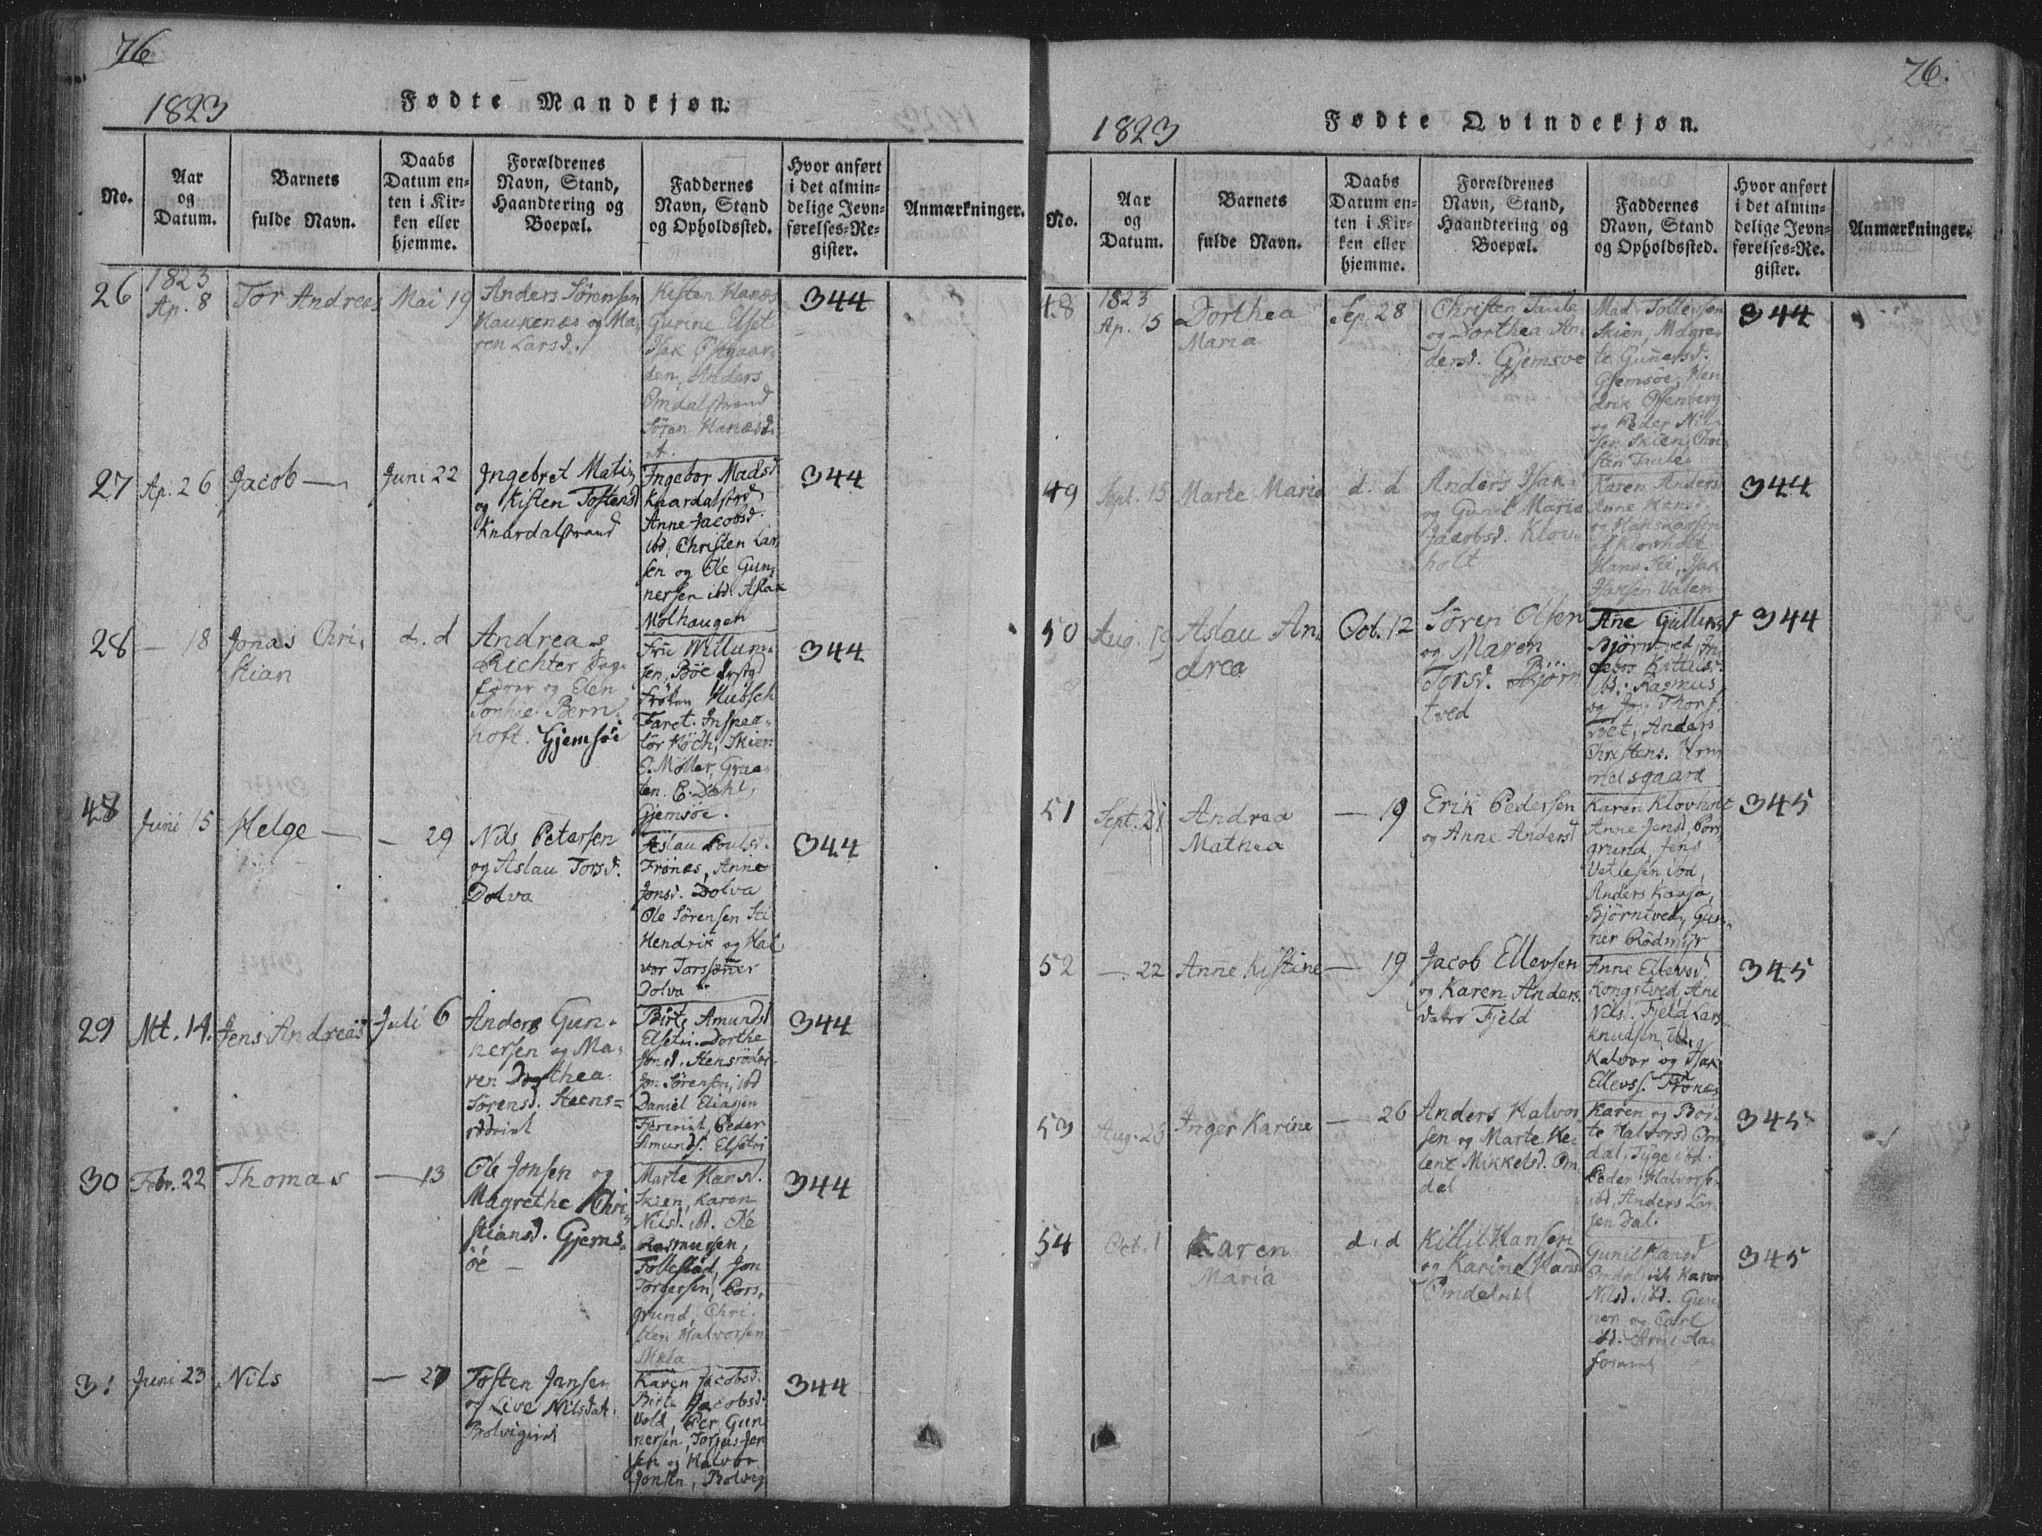 76
1823
Fødte Mandkjøn.
No.
Aar
og
Datum.
Barnets
fulde Navn.
Daabs
Datum en-
ten i Kir-
ken eller
hjemme.
Forældrenes
Navn, Stand,
Haandtering og
Boepæl.
Faddernes
Navn, Stand
og Opholdssted.
Hvor anført
i det almin-
delige Jevn-
førelses-Re-
gister.
Anmærkninger.
26
1823
Ap. 8
Tor Andreas
Mai 19
Anders Sørensen
Haukenæs og Ma,
ren Larsd.
Kisten Hanæs
Gurine Uset
Isak
den, Anders
Omdalstrand
Søren Hanæsd
344
27
Ap. 26
Jacob —
Juni 22
Ingebret Mati,
og Kisten Tostens
Knardalstrand
Ingebor Madsd
Knardalstrd
Anne Jacobsd.
ibd, Christen Lar
sen og Ole Gun,
nersen ibd. Aslak
Molhaugen
344
28
— 18
Jonas Chri,
stian
d. d
Andreas
Richter Sag-
fører og Elen
Sophie Bern,
hoft. Gjemsöe
Fru Willum-
sen, Böe
Frøken Hübsch
Faret. Inspec-
tör Köch, Skien
E. Møller, Graa-
ten. E. Dahl,
Gjemsøe.
344
48
Juni 15
Helge —
— 29
Nils Petersen
og Aslau Torsd.
Dolva
Aslau Poulsd.
Frönæs, Anne
Jonsd. Dolva
Ole Sørensen Sti
Hendrik og Hal
vor Torssønner
Dolva
344
29
Mt. 14.
Jens Andreas
Juli 6
Anders Gun-
nersen og Ma-
ren Dorthea
Sørensd. Steens=
rödriat
Birte Amundsd
Elsetri. Dorthe
Jonsd. Stensröder
Jon Sørensen, ibd
Daniel Eliassen
Fjererist, Peder
Amunds. Elsetri
344
30
Febr. 22
Thomas
— 13
Ole Jonsen og
Magrethe Chri
stiansd. Gjems,
öe —
Marte Hansd.
Skien, Karen
Nilsd. ibd. Ole
Rasmussen,
Follestad, Jon
Torgersen, Pors,
grund, Chri,
sten Halvorsen
Mæla
344
31
Juni 23
Nils
— 27
Tosten Jansen
og Live Nilsdat.
Bolvigeiet
Karen Jacobsd.
Birte Jacobsd.
Vold, Per Gun
nersen, Torjus Jen
sen og Halvor
Jonsen, Bolvig
344
76.
1823
Fødte Qvindekjøn.
No.
Aar
og
Datum.
Barnets
fulde Navn.
Daabs
Datum en-
ten i Kir-
ken eller
hjemme.
Forældrenes
Navn, Stand,
Haandtering og
Boepæl.
Faddernes
Navn, Stand
og Opholdssted.
Hvor anført
i det almin-
delige Jevn-
førelses-Re-
gister.
Anmærkninger.
48
1823
Ap. 15
Dorthea
Maria
Sep. 28
Christen Taule
og Dorthea An
dersd. Gjemsøe
Mad. Tollersen
Skien, Magre-
te Gunersd.
Gjemsøe, Hen
drik Essenberg
og Peder Nil-
sen Skien, Chri
sten Taule
344
49
Sept. 15
Marte Maria
d. d
Anders Isak-
og Gunil Maria
Jacobsd. Klov-
holt
Karen Anders
Anne Hansd
og Hans Larsen
af Klovholt
Hans Isak
Hansen Valen
344
50
Aug. 19
Aslau An,
drea
Oct. 12
Søren Olsen
og Maren
Torsd. Björn
tved
Ane Gullinsd
Björntved, In
gebor Kittilsd.
ibd. Rasmus
og Thors
tvet, Anders
Christens. Hom
melsgaard
344
51
Sept. 21
Andrea
Mathea
— 19
Erik Pedersen
og Anne Andersd
Karen Klovholt
Anne Jensd, Pors
grund, Jens
Vetlesen ibd,
Anders Kaasa,
Bjørntved, Gun-
ner Rødmyr
345
52
— 22
Anne Kistine
— 19
Jacob Ellevsen
og Karen Anders
datter Fjeld
Anne Ellevsd,
Kongstved, Ane
Nils. Fjeld Lars
Knudsen, ibd,
Halvor og Isak
Ellevss. Frönæs
345
53
Aug. 25
Inger Karine
— 26
Anders Halvor
sen og Marte He
lene Mikkelsd. Om
dal
Karen og Bør-
te Halvorsd Om
dal, Syge ibd.
Peder Halvors-
ibd, Anders Lar
sen Dal.
345
54
Oct. 1
Karen
Maria
d. d
Kittil Hansen
og Karine Hansd
Omdalriet
Gunil Hansd
Omdalriet Karen
Nilsd. ibd. Gun
ner og Carl
ibd. Arne Aa
345